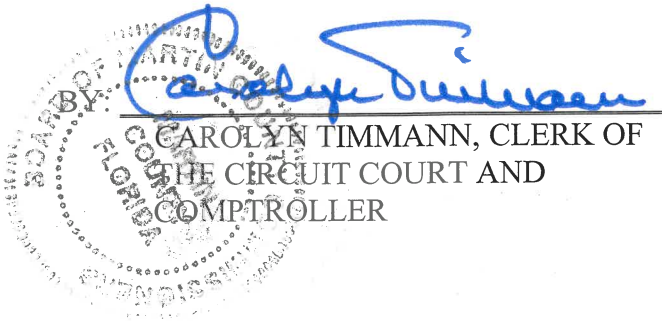 Carolyn Timmann
BY:
CAROLYN TIMMANN, CLERK OF
THE CIRCUIT COURT AND
COMPTROLLER
BOARD OF MARTIN COUNTY
COMMISSIONERS
MARTIN
COUNTY
FLORIDA